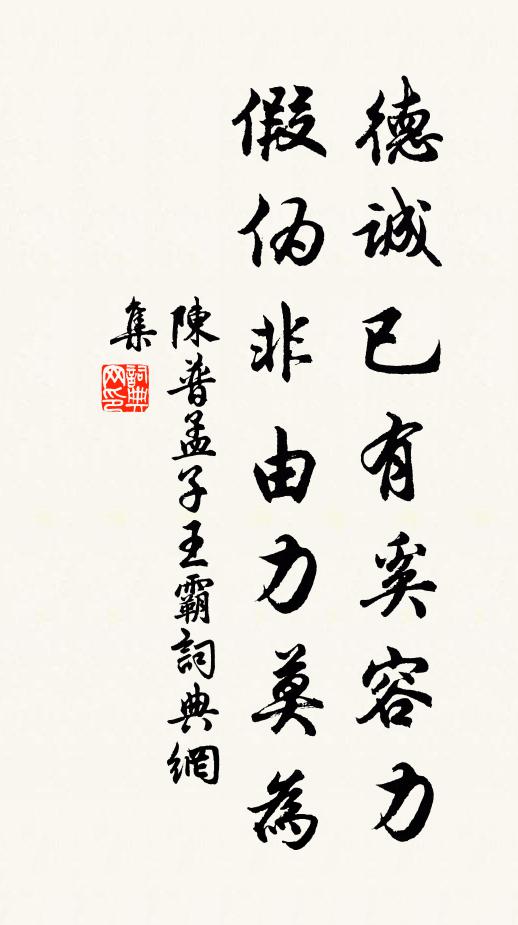 德誠已有奚容力
假偽非由力莫為
陳普孟子王霸詞典網
集
詞典网印